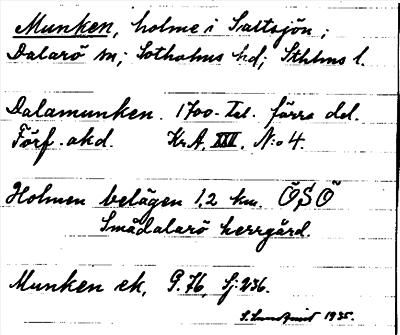 Munken, holme i Saltsjön;
Dalarö sn; Sotholms hd; Sthlms l.
Dalamunken. 1700-tal. förra del.
Förf. okd. Kr.A. XXX, N:o 4.
Holmen belägen 1,2 km. ÖSÖ
Smådalarö herrgård.
Munken ek, G.76, Sj:236.
S. Lundquist 1935.